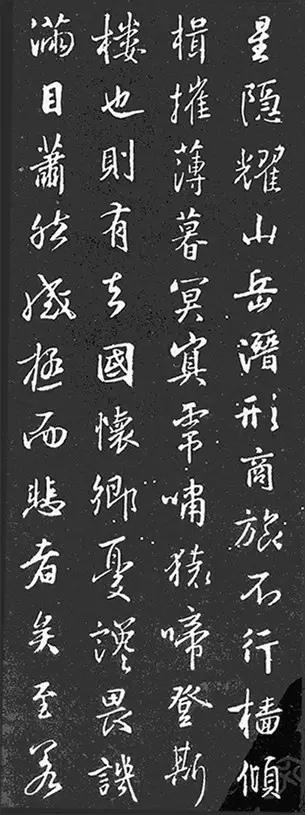 星隱耀山岳潛形商旅不行檣傾
楫摧薄暮冥冥虎嘯猿啼登斯
樓也則有去國懷鄉憂讒畏譏
滿目蕭然感極而悲者矣至若